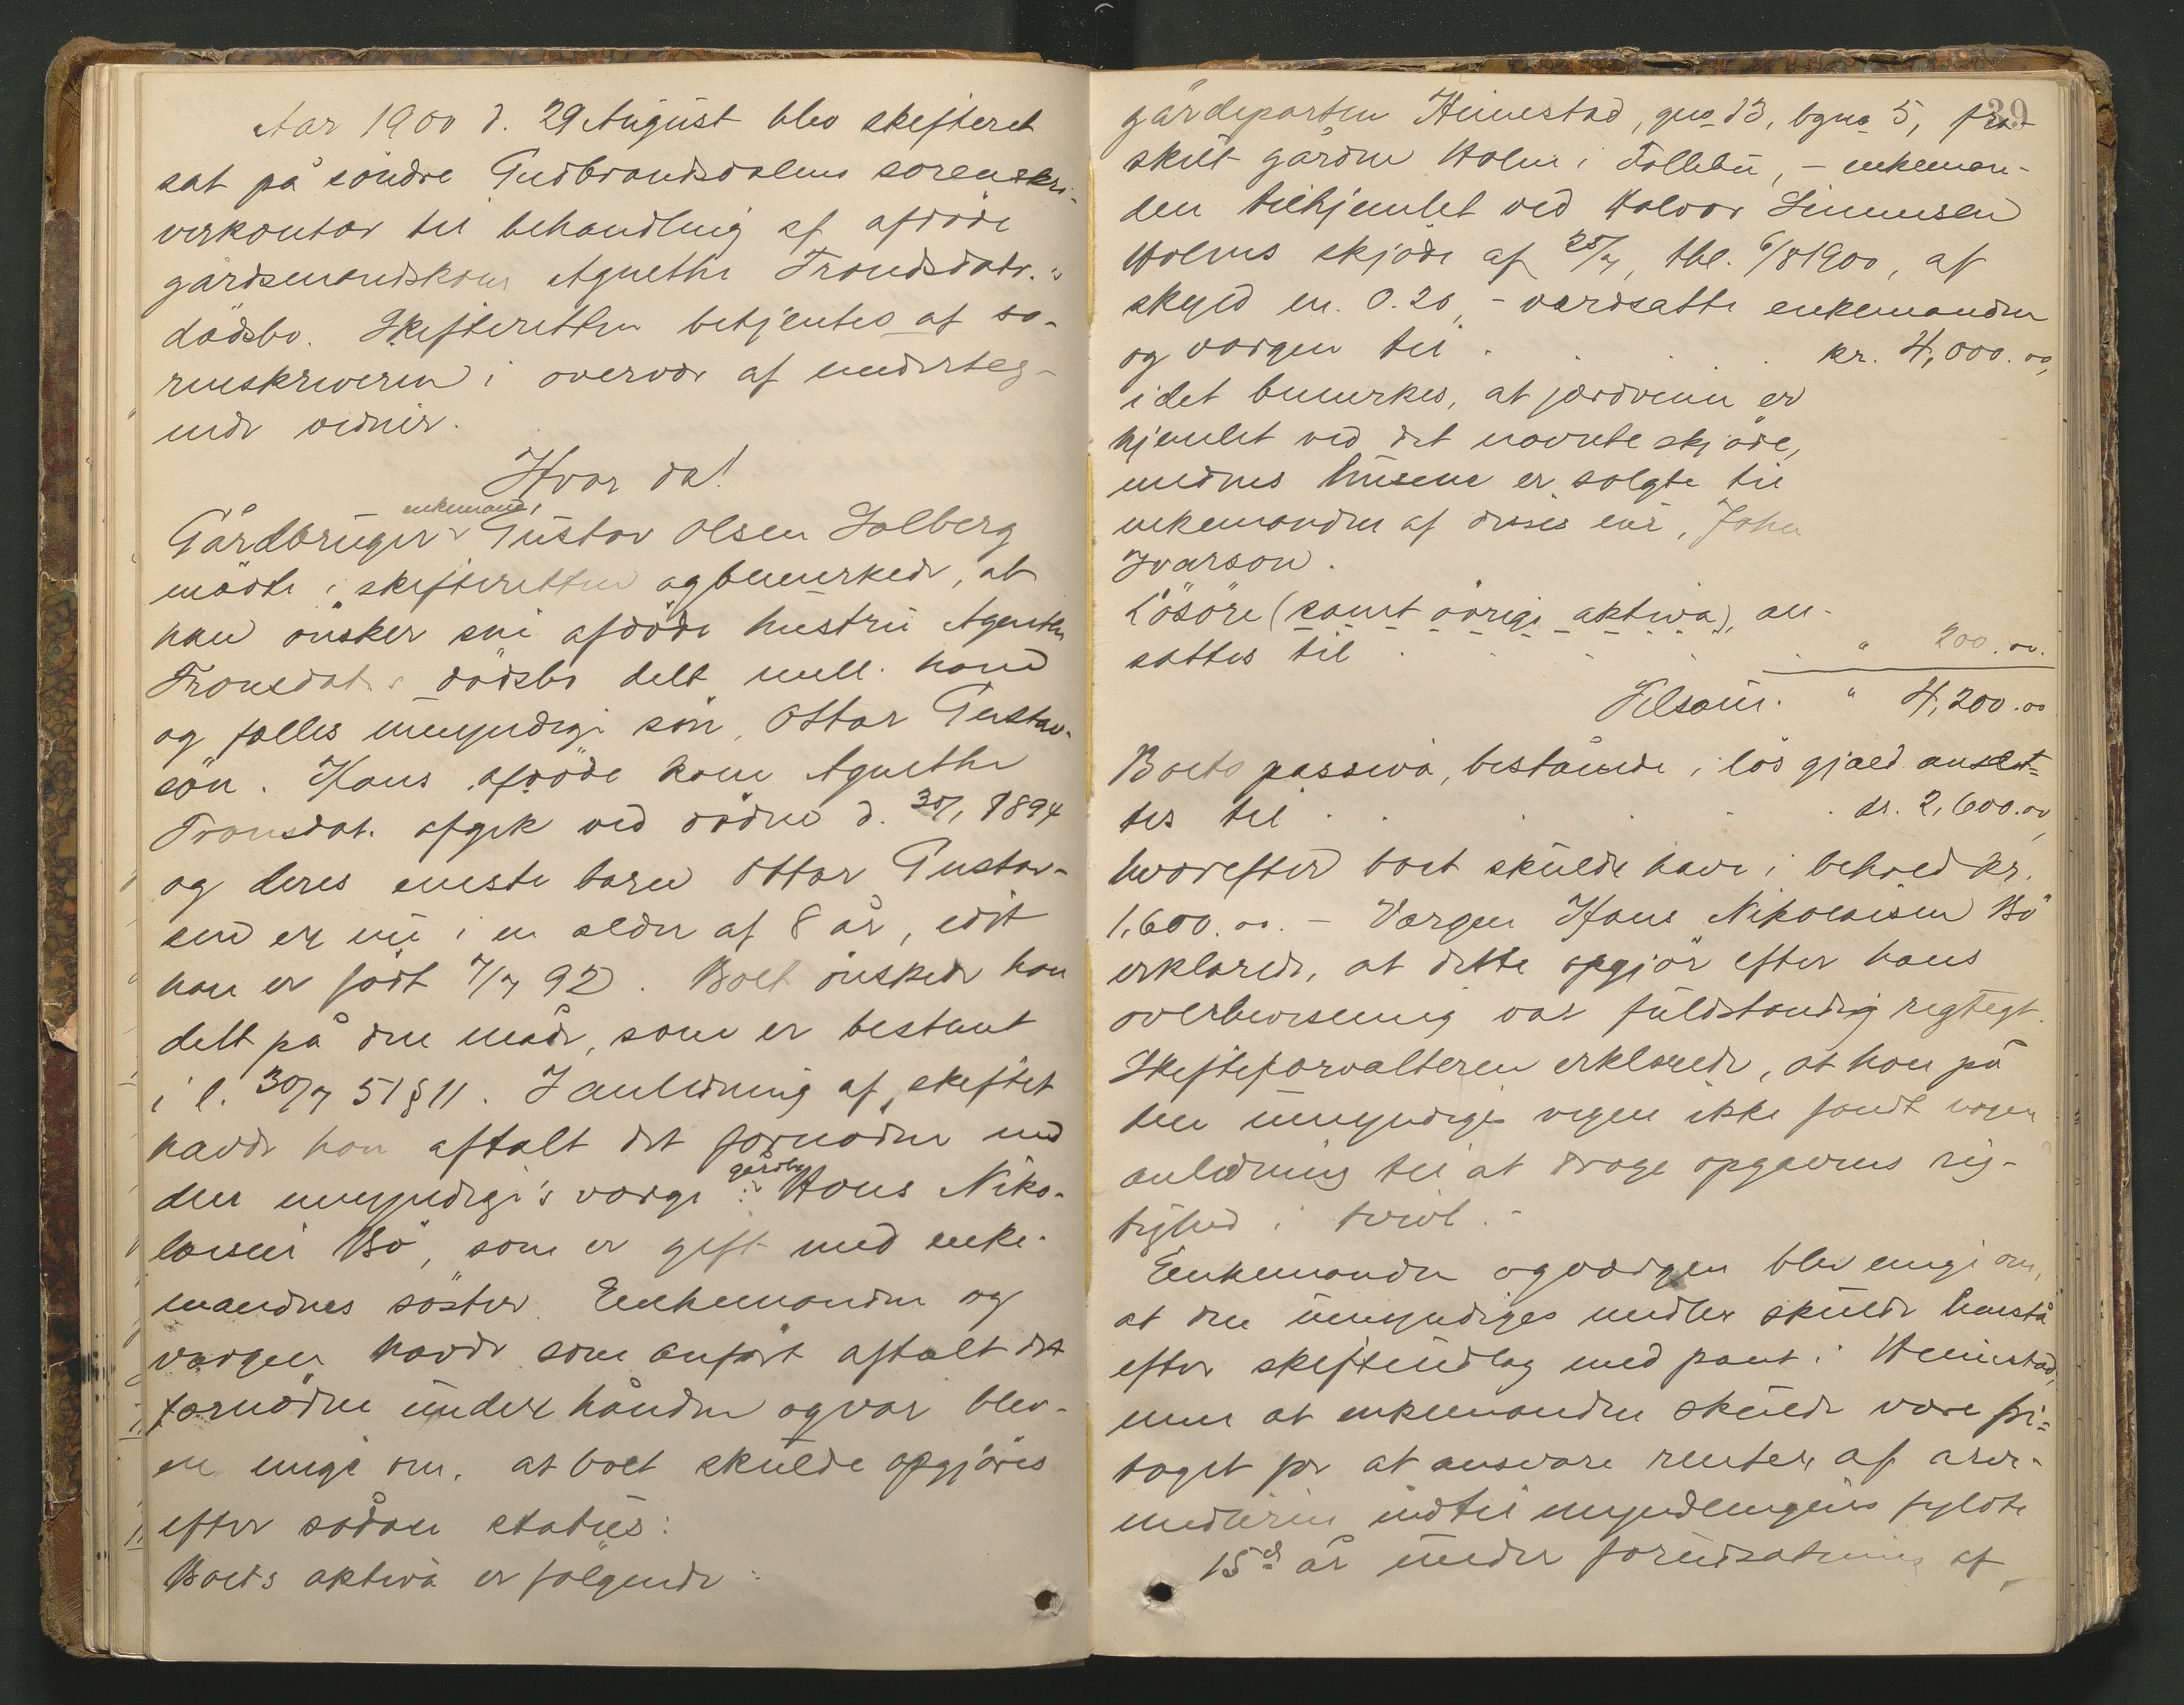 Aar 1900 d. 29 August blev skifteret
sat på söndre Gudbrandsdalens sorenskri-
verkontor til behandling af afdöde
gårdsmandskone Agnethe Trondsdatr.s
dödsbo. Skifteretten betjentes af so-
renskriveren i overvær af underteg-
nede vidner.
Hvor da!
enkemand,
Gårdbruger Gustav Olsen Solberg
mödte i skifteretten og bemerkede, at
han önsker sin afdöde hustru Agnethe
Tronsdat.s dödsbo delt mell. ham
og fælles umyndige sön, Ottar Gustav-
sön. Hans afdöde kone Agnethe
Tronsdat. afgik ved döden d. 30/1 1894
og deres eneste barn Ottar Gustav-
sen er nu i en alder af 8 år, idet
han er födt 7/7 92. Boet önskede han
delt på den måde, som er bestemt
i l. 30/7 51 § 11. I anledning af skiftet
havde han aftalt det fornødne med
den umyndige's værge: gårdbr. Hans Niko-
laisen Bö, som er gift med enke-
mandens söster. Enkemanden og
værgen havde som anfört aftalt det
fornödne under hånden og var blev-
en enige om, at boet skulde opgjöres
efter sådan status:
Boets aktiva er fölgende:
39
gårdeparten Heimestad, gno 13, bgno 5, fra-
skilt gården Holm i Follebu, - enkeman-
den tilhjemlet ved Halvor Simensen
Holms skjöde af 25/7, tbl. 6/8 1900, af
skyld m. 0.20, - værdsatte enkemanden
og værgen til . . . kr. 4,000.00,
idet bemerkes, at jordveien er
hjemlet ved det nævnte skjöde,
medens husene er solgte til
enkemanden af disses eier, John
Ivarson.
Lösöre (samt övrige aktiva), an-
sattes til . . . . " 200.00.
Tilsam. " 4,200.00
Boets passiva, bestående i lös gjæld ansat-
tes til . . . . kr. 2,600.00,
hvorefter boet skulde have i behold kr.
1,600.00. - Værgen Hans Nikolaisen Bö
erklærede, at dette opgjör efter hans
overbevisning var fuldstændig rigtigt.
Skifteforvalteren erklærede, at han på
den umyndiges vegne ikke fandt nogen
anledning til at drage opgavens rig-
tighed i tvivl. -
Enkemanden og værgen blev enige om,
at den umyndiges midler skulde henstå
efter skifteudlæg med pant i Heimestad,
men at enkemanden skulde være fri-
taget for at ansvare renter af arve-
midlerne indtil myndlingens fyldte
15de år under forudsætning af,